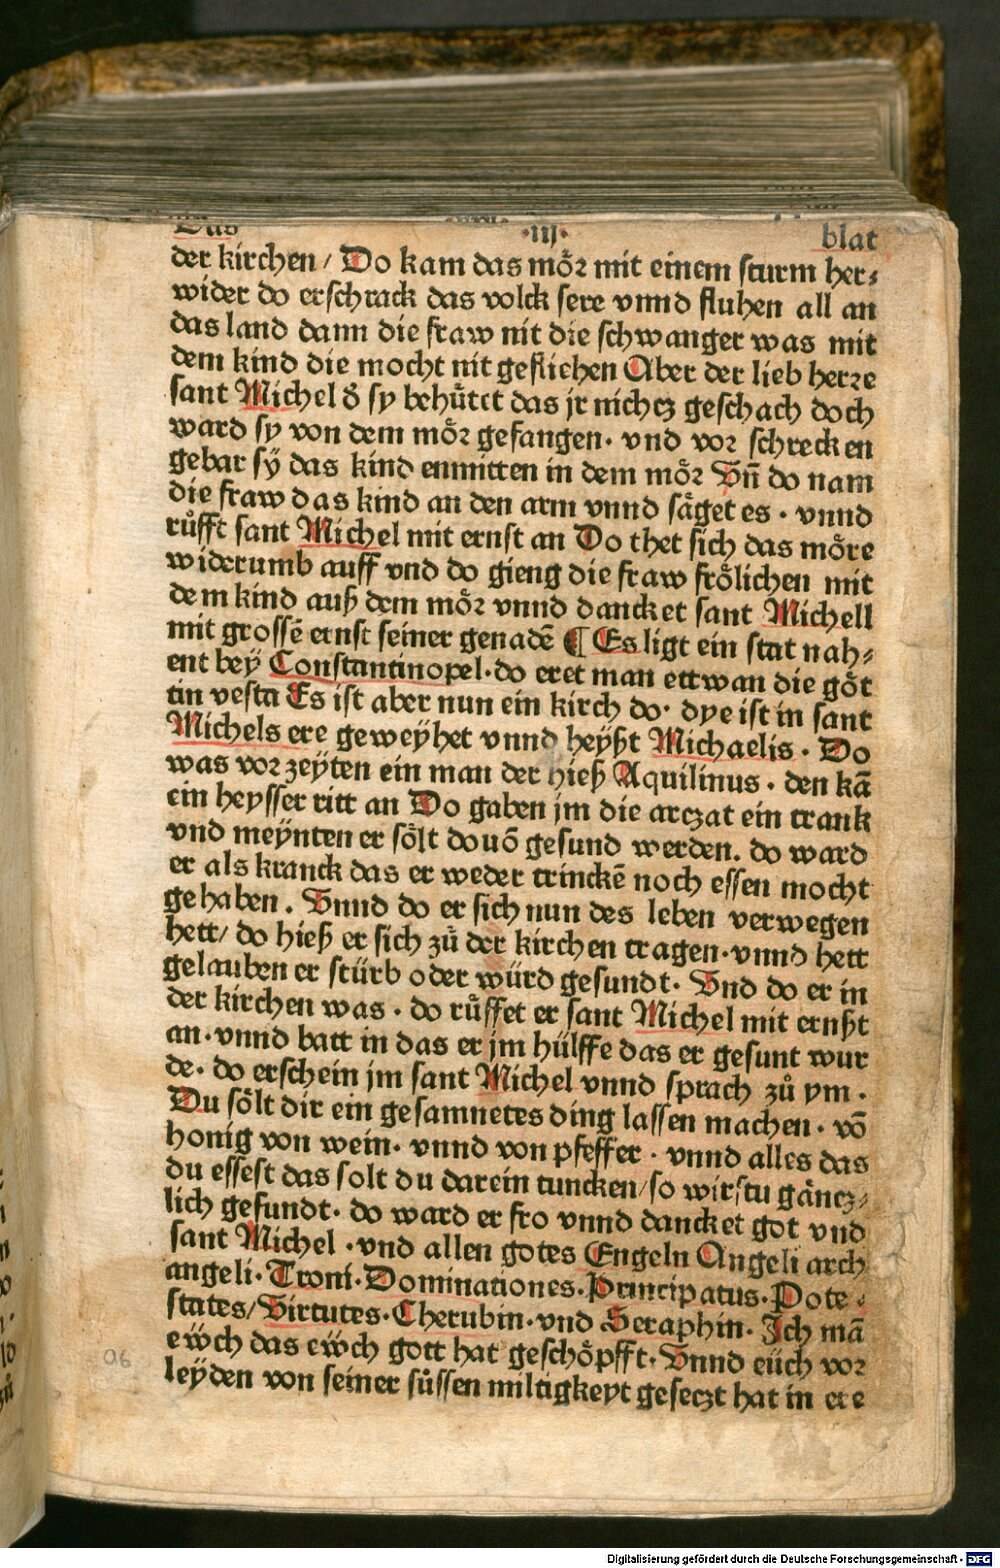 Das .iij. blat
der kirchen / Do kam das moͤꝛ mit einem sturm her⸗
wider do erschrack das volck sere vnnd fluhen all an
das land dann die fraw nit die schwanger was mit
dem kind die mocht nit gefliehen Aber der lieb herꝛe
sant Michel d̕ sy behuͤtet das jr nichcz geschach doch
ward sy von dem moͤꝛ gefangen. vnd voꝛ schrecken
gebar sÿ das kind enmitten in dem moͤꝛ Vn̄ do nam
die fraw das kind an den arm vnnd saͤget es . vnnd
ruͦfft sant Michel mit ernst an Do thet sich das moͤre
widerumb auff vnd do gieng die fraw froͤlichen mit
dem kind auß dem moͤꝛ vnnd dancket sant Michell
mit grossē ernst seiner genadē ¶ Es ligt ein stat nah⸗
ent beÿ Constantinopel. do eret man ettwan die goͤt
tin vesta Es ist aber nun ein kirch do. dye ist in sant
Michels ere geweÿhet vnnd heÿßt Michaelis . Do
was voꝛ zeÿten ein man der hieß Aquilinus . den kā
ein heysser ritt an Do gaben jm die arczat ein trank
vnd meÿnten er soͤlt douō gesund werden. do ward
er als kranck das er weder trinckē noch essen mocht
gehaben . Vnnd do er sich nun des leben verwegen
hett/ do hieß er sich zuͦ der kirchen tragen. vnnd hett
gelauben er stürb oder würd gesundt. Vnd do er in
der kirchen was . do ruͦffet er sant Michel mit ernßt
an. vnnd batt in das er jm hülffe das er gesunt wur
de. do erschein jm sant Michel vnnd sprach zuͦ ym .
Du soͤlt dir ein gesamnetes ding lassen machen . vō
honig von wein. vnnd von pfeffer . vnnd alles das
du essest das solt du darein tuncken/ so wirstu gaͤncz⸗
lich gesundt. do ward er fro vnnd dancket got vnd
sant Michel . vnd allen gotes Engeln Angeli arch
angeli. Troni. Dominationes. Principatus. Pote⸗
states/ Virtutes. Cherubin. vnd Seraphin. Ich mā
eẅch das eẅch gott hat geschoͤpfft. Vnnd eüch voꝛ
leÿden von seiner suͤssen miltigkeyt geseczt hat in ere
96
Digitalisierung gefördert durch die Deutsche Forschungsgemeinschaft - DFG